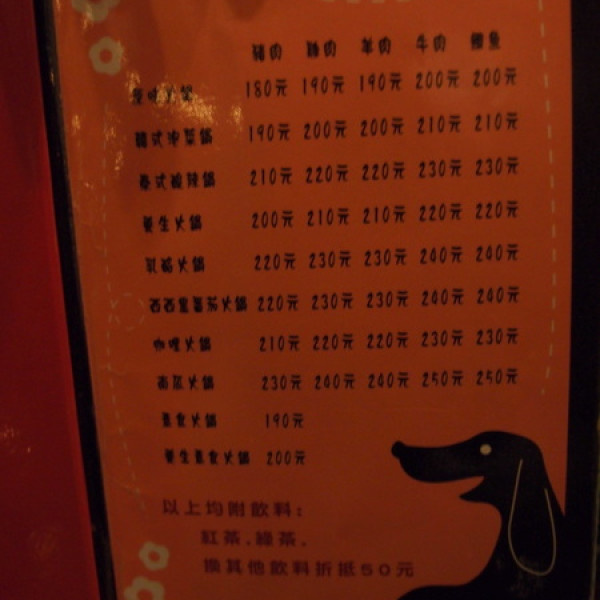 豬肉 雞肉 羊肉 牛肉 鯛魚
原味火鍋 180元 190元 190元 200元 200元
韓式泡菜鍋 190元 200元 200元 210元 210元
泰式酸辣鍋 210元 220元 220元 230元 230元
養生火鍋 200元 210元 210元 220元 220元
乳酪火鍋 220元 230元 230元 240元 240元
西西里蕃茄火鍋 220元 230元 230元 240元 240元
咖哩火鍋 210元 220元 220元 230元 230元
南瓜火鍋 230元 240元 240元 250元 250元
素食火鍋 190元
養生素食火鍋 200元
以上均附飲料:
紅茶.綠茶.
換其他飲料折抵50元